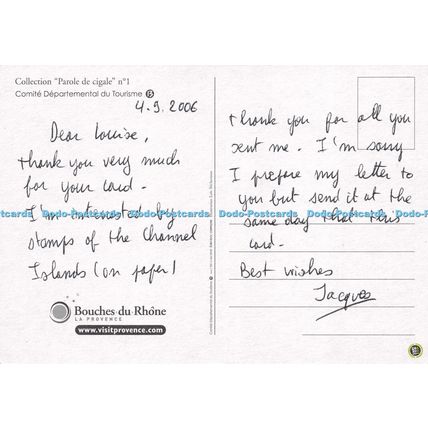 Collection "Parole de cigale" n°1
Comité Départemental du Tourisme 13
4.9.2006
Dear Louise,
thank you very much
for your card.
I'm interested by
stamps of the Channel
Islands (on paper)
Bouches-du-Rhône
LA PROVENCE
www.visitprovence.com
thank you for all you
sent me. I'm sorry
I prepare my letter to
you but send it at the
same day that this
card.
Best wishes
Jacques
Dodo-Postcards Dodo-Postcards Dodo-Postcards Dodo-Postcards Dodo-Postcards